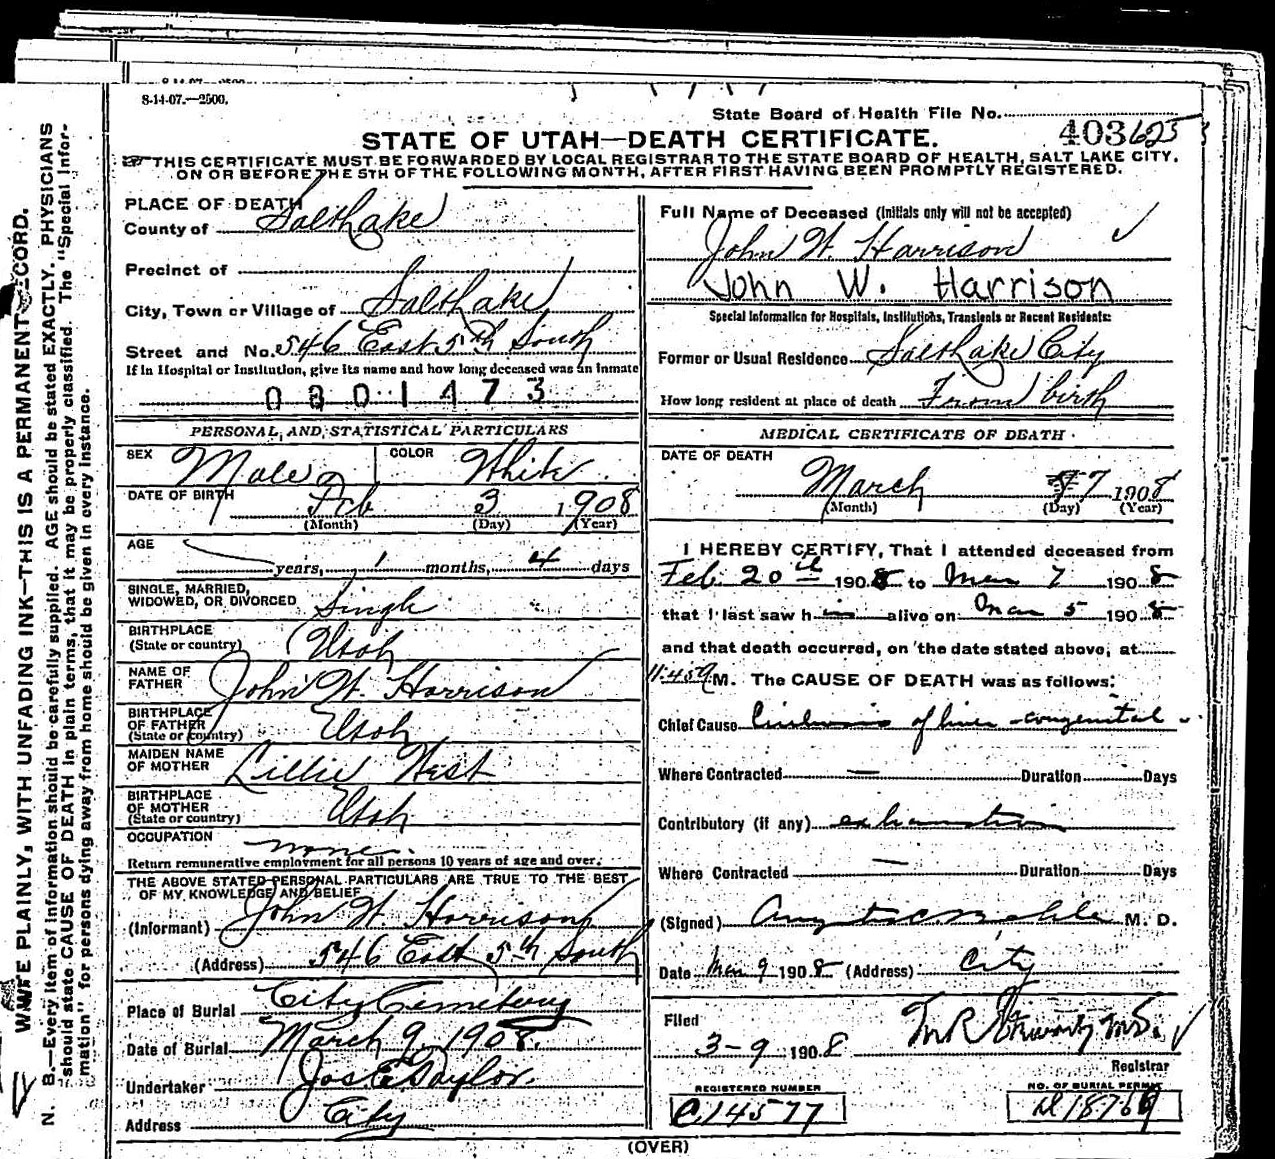 8-14-07.—2500.
State Board of Health File No.
403 625
STATE OF UTAH—DEATH CERTIFICATE.
THIS CERTIFICATE MUST BE FORWARDED BY LOCAL REGISTRAR TO THE STATE BOARD OF HEALTH, SALT LAKE CITY,
ON OR BEFORE THE 5TH OF THE FOLLOWING MONTH, AFTER FIRST HAVING BEEN PROMPTLY REGISTERED.
PLACE OF DEATH
County of Salt Lake
Precinct of
City, Town or Village of Salt Lake
Street and No. 546 East 5th South
If in Hospital or Institution, give its name and how long deceased was an inmate
0801473
PERSONAL AND STATISTICAL PARTICULARS
SEX Male COLOR White
DATE OF BIRTH Feb 3 1908
(Month) (Day) (Year)
AGE
years, 1 months, 4 days
SINGLE, MARRIED,
WIDOWED, OR DIVORCED Single
BIRTHPLACE
(State or country) Utah
NAME OF
FATHER John W. Harrison
BIRTHPLACE
OF FATHER
(State or country) Utah
MAIDEN NAME
OF MOTHER Lillie West
BIRTHPLACE
OF MOTHER
(State or country) Utah
OCCUPATION none.
Return remunerative employment for all persons 10 years of age and over.
THE ABOVE STATED PERSONAL PARTICULARS ARE TRUE TO THE BEST
OF MY KNOWLEDGE AND BELIEF
(Informant) John W. Harrison
(Address) 546 East 5th South
Place of Burial City Cemetery
Date of Burial March 9, 1908.
Undertaker Jos E Taylor.
Address City
Full Name of Deceased (Initials only will not be accepted)
John W. Harrison
John W. Harrison
Special Information for Hospitals, Institutions, Transients or Recent Residents:
Former or Usual Residence Salt Lake City
How long resident at place of death From birth
MEDICAL CERTIFICATE OF DEATH
DATE OF DEATH
March 7 1908
(Month) (Day) (Year)
I HEREBY CERTIFY, That I attended deceased from
Feb. 20th 1908 to Mar 7 1908
that I last saw h im alive on Mar 5 1908
and that death occurred, on the date stated above, at
11:45 M. The CAUSE OF DEATH was as follows:
Chief Cause Cirrhosis of liver - congenital
Where Contracted — Duration Days
Contributory (if any) exhaustion
Where Contracted — Duration Days
(Signed) M. D.
Date Mar 9 1908 (Address) City
Filed
3-9 1908
Registrar
REGISTERED NUMBER
C14577
NO. OF BURIAL PERMIT
(OVER)
WRITE PLAINLY, WITH UNFADING INK—THIS IS A PERMANENT RECORD.
N. B.—Every item of information should be carefully supplied. AGE should be stated EXACTLY. PHYSICIANS
should state CAUSE OF DEATH in plain terms, that it may be properly classified. The "Special Infor-
mation" for persons dying away from home should be given in every instance.